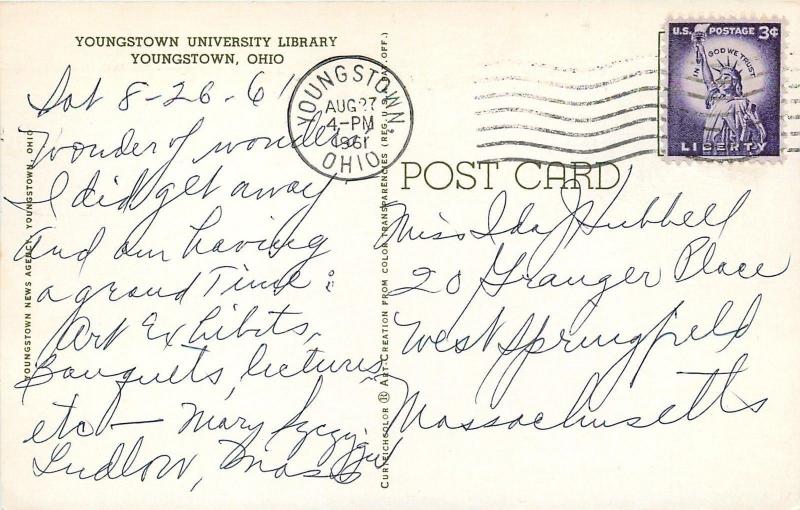 YOUNGSTOWN UNIVERSITY LIBRARY
YOUNGSTOWN, OHIO
Sat 8-26-61
Wonder of wonders
I did get away
and am having
a grand Time:
Art Exhibits,
Banquets, lectures,
etc — Mary
Ludlow, Mass
YOUNGSTOWN NEWS AGENCY, YOUNGSTOWN, OHIO
YOUNGSTOWN, OHIO
AUG 27
4-PM
1961
CURTEICHCOLOR ® ART-CREATION FROM COLOR TRANSPARENCIES (REG. U.S. PAT. OFF.)
U.S. POSTAGE 3¢
IN GOD WE TRUST
LIBERTY
POST CARD
Miss Ida J Hubbell
20 Granger Place
West Springfield
Massachusetts